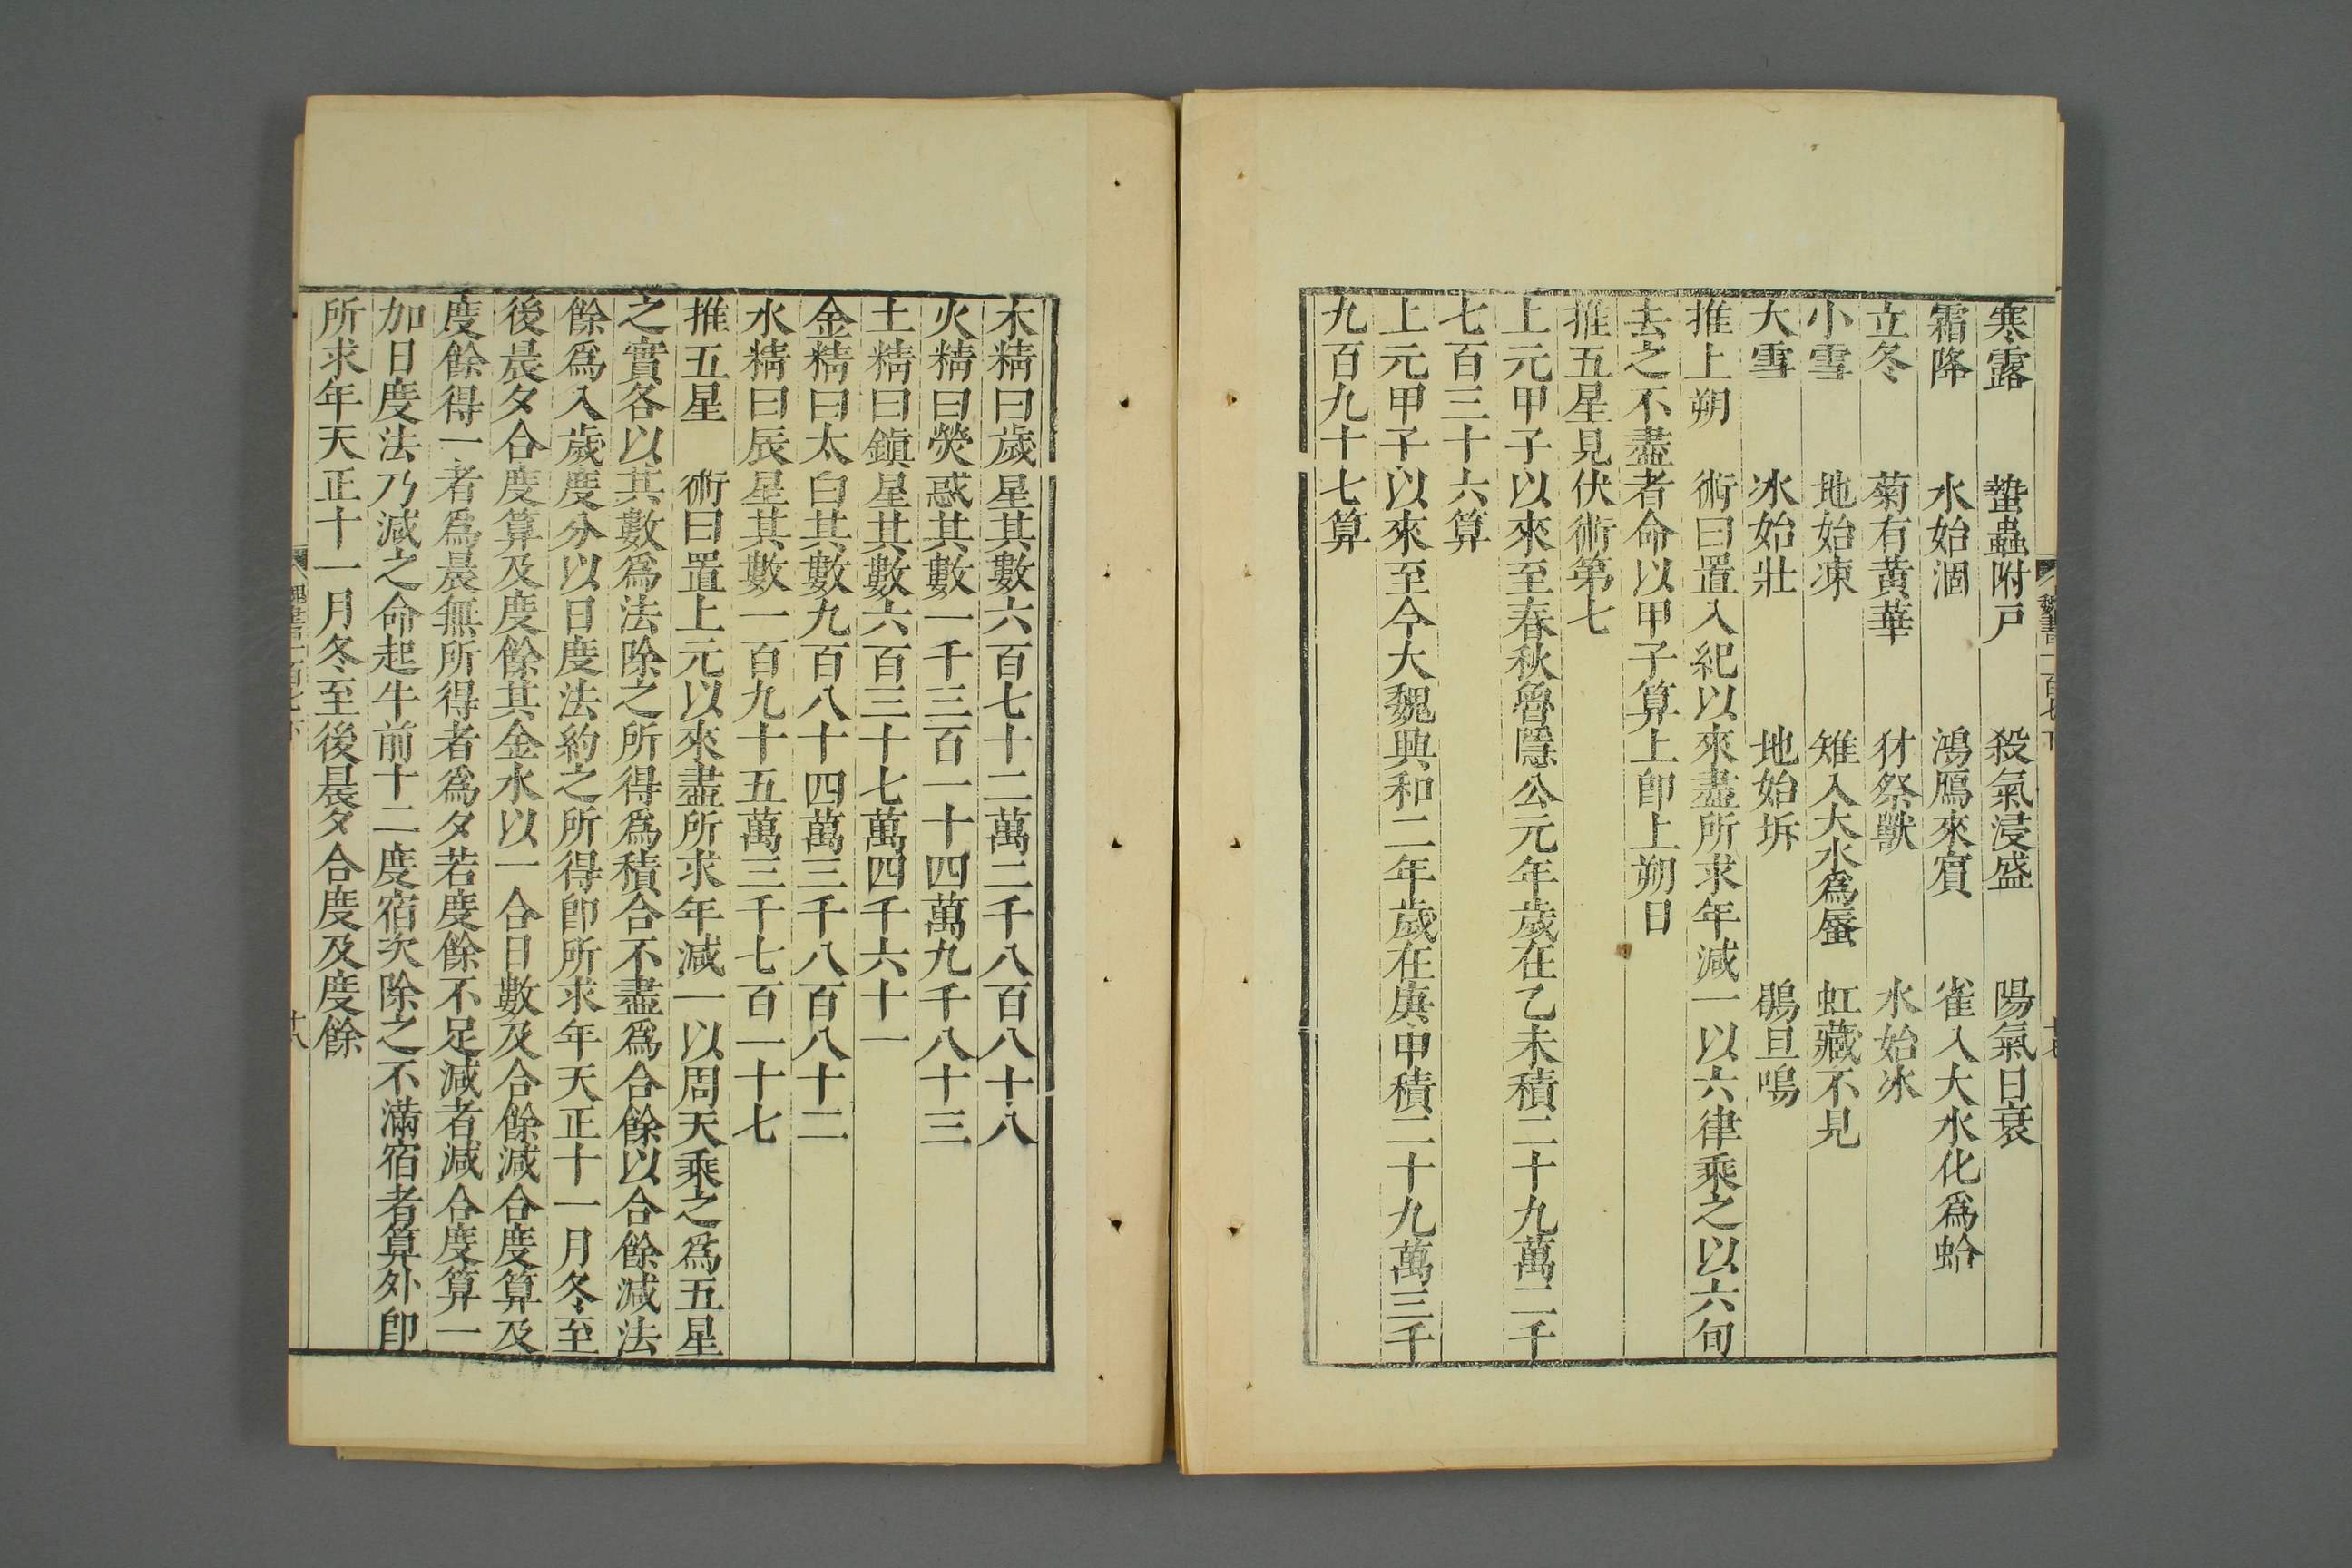 魏書一百七下
十七
寒露　蟄蟲附戸　殺氣浸盛　陽氣日衰
霜降　水始涸　鴻鴈來賓　雀入大水化爲蛤
立冬　菊有黃華　豺祭獸　水始冰
小雪　地始凍　雉入大水爲蜃　虹藏不見
大雪　冰始壯　地始坼　鶡旦鳴
推上朔　術曰置入紀以來盡所求年减一以六律乘之以六旬
去之不盡者命以甲子算上卽上朔日
推五星見伏術第七
上元甲子以來至春秋魯隱公元年歲在乙未積二十九萬二千
七百三十六算
上元甲子以來至今大魏興和二年歲在庚申積二十九萬三千
九百九十七算
木精曰歲星其數六百七十二萬二千八百八十八
火精曰熒惑其數一千三百一十四萬九千八十三
土精曰鎭星其數六百三十七萬四千六十一
金精曰太白其數九百八十四萬三千八百八十二
水精曰辰星其數一百九十五萬三千七百一十七
推五星　術曰置上元以來盡所求年减一以周天乘之爲五星
之實各以其數爲法除之所得爲積合不盡爲合餘以合餘减法
餘爲入歲度分以日度法約之所得卽所求年天正十一月冬至
後晨夕合度算及度餘其金水以一合日數及合餘减合度算及
度餘得一者爲晨無所得者爲夕若度餘不足减者减合度算一
加日度法乃减之命起牛前十二度宿次除之不滿宿者算外卽
所求年天正十一月冬至後晨夕合度及度餘
魏書一百七下
十八